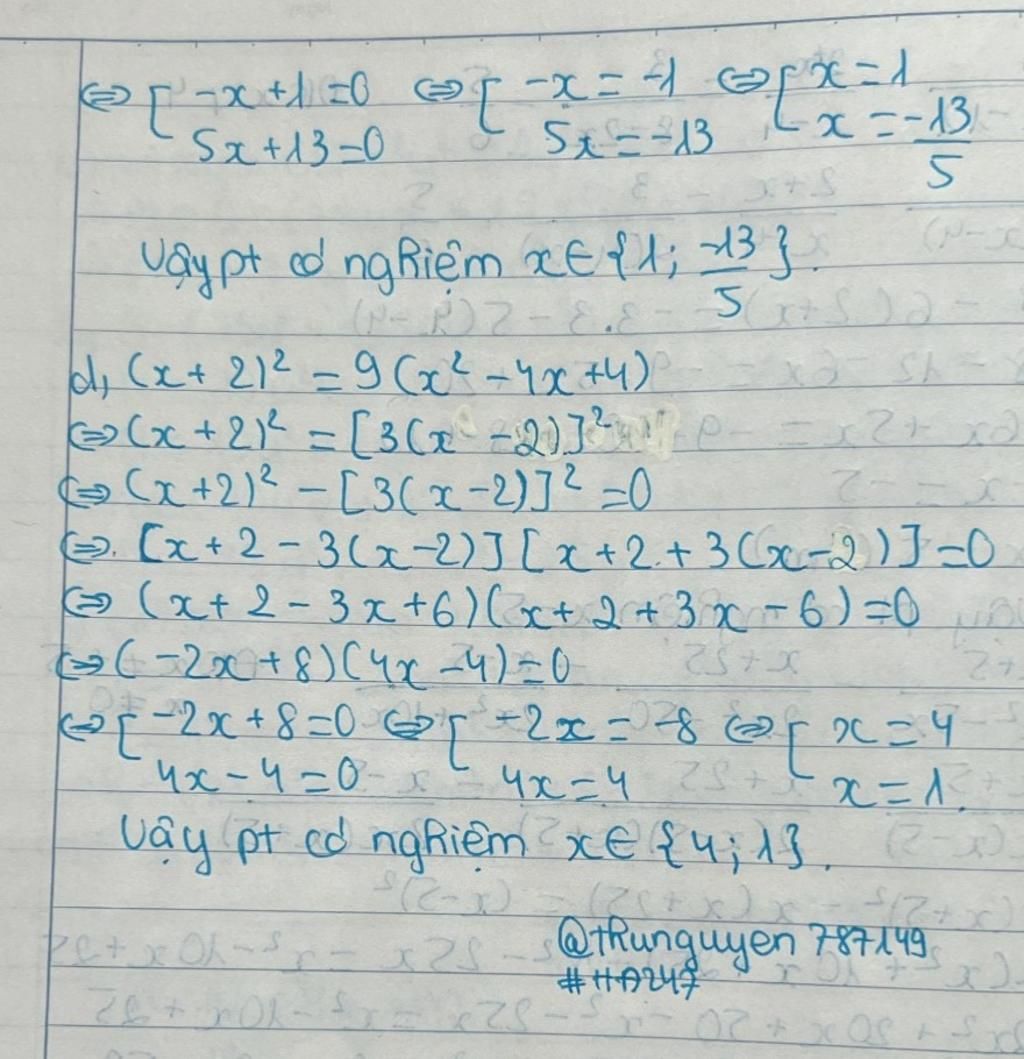 ⇔ [ -x + 1 = 0 ⇔ [ -x = -1 ⇔ [ x = 1
5x + 13 = 0 5x = -13 x = -13/5
Vậy pt có nghiệm x ∈ {1; -13/5}.
d, (x + 2)² = 9(x² - 4x + 4)
⇔ (x + 2)² = [3(x - 2)]²
⇔ (x + 2)² - [3(x - 2)]² = 0
⇔. [x + 2 - 3(x - 2)] [x + 2 + 3(x - 2)] = 0
⇔ (x + 2 - 3x + 6)(x + 2 + 3x - 6) = 0
⇔ (-2x + 8)(4x - 4) = 0
⇔ [ -2x + 8 = 0 ⇔ [ -2x = -8 ⇔ [ x = 4
4x - 4 = 0 4x = 4 x = 1.
Vậy pt có nghiệm x ∈ {4; 1}.
@thunguyen787149
#HĐ247